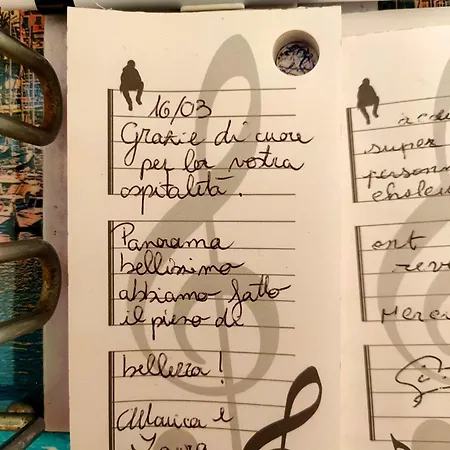 16/03
Grazie di cuore
per la vostra
ospitalità.
Panorama
bellissimo
abbiamo fatto
il pieno di
bellezza!
Marica e
super
ont
Merci